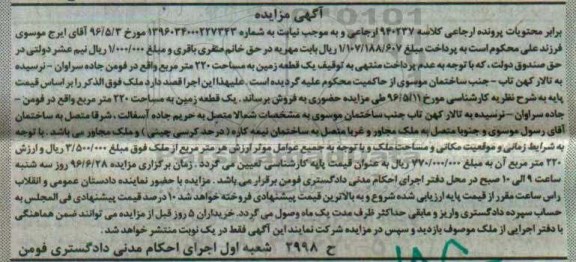 آگهی مزایده
برابر محتویات پرونده ارجاعی کلاسه ۹۴۰۲۳۷ ارجاعی و به موجب نیابت به شماره ۱۳۹۶۰۳۴۰۰۰۲۲۷۳۴۳ مورخ ۹۶/۵/۳ آقای ایرج موسوی
فرزند علی محکوم است به پرداخت مبلغ ۱/۱۰۷/۱۸۸/۶۰۷ ریال بابت مهریه در حق خانم صغری باقری و مبلغ ۱/۰۰۰/۰۰۰ ریال نیم عشر دولتی در
حق صندوق دولت ، که با توجه به عدم پرداخت منتهی به توقیف یک قطعه زمین به مساحت ۲۲۰ متر مربع واقع در فومن جاده سراوان - نرسیده
به تالار کهن تاب - جنب ساختمان موسوی از حاکمیت محکوم علیه گردیده است . علیهذا این اجرا قصد دارد ملک فوق الذکر را بر اساس قیمت
پایه به شرح نظریه کارشناسی مورخ ۹۶/۵/۱۱ طی مزایده حضوری به فروش برساند . یک قطعه زمین به مساحت ۲۲۰ متر مربع واقع در فومن -
جاده سراوان - نرسیده به تالار کهن تاب جنب ساختمان موسوی به مشخصات شمالا متصل به حریم جاده آسفالت ، شرقا متصل به ساختمان
آقای رسول موسوی و جنوبا متصل به ملک مجاور و غربا متصل به ساختمان نیمه کاره ( در حد کرسی چینی ) و ملک مجاور می باشد . با توجه
به شرایط زمانی و موقعیت مکانی و مساحت ملک و با توجه به جمیع عوامل موثر ارزش هر متر مربع از ملک فوق مبلغ ۳/۵۰۰/۰۰۰ ریال و ارزش
۲۲۰ متر مربع آن به مبلغ ۷۷۰/۰۰۰/۰۰۰ ریال به عنوان قیمت پایه کارشناسی تعیین می گردد . زمان برگزاری مزایده ۹۶/۶/۲۸ روز سه شنبه
ساعت ۹ الی ۱۰ صبح در محل دفتر اجرای احکام مدنی دادگستری فومن برقرار می باشد . مزایده با حضور نماینده دادستان عمومی و انقلاب
راس ساعت مقرر از قیمت پایه ارزیابی شده شروع و به بالاترین قیمت پیشنهادی فروخته خواهد شد ۱۰ درصد قیمت پیشنهادی فی المجلس به
حساب سپرده دادگستری واریز و مابقی حداکثر ظرف مدت یک ماه وصول می گردد. خریداران ۵ روز قبل از مزایده می توانند ضمن هماهنگی
با دفتر اجرایی از ملک موصوف بازدید و سپس در مزایده شرکت نمایند این آگهی فقط در یک نوبت منتشر خواهد شد .
ح ۲۹۹۸ شعبه اول اجرای احکام مدنی دادگستری فومن